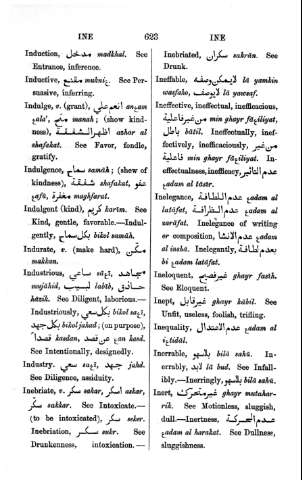 INE 623 INE
Induction, مدخل madkhal. See
Entrance, inference.
Inductive, مقنع mukniε. See Per-
suasive, inferring.
Indulge, v. (grant), انعم علي anεam
εala', منه manah; (show kind-
ness), اظهر الشفقة azhar al
shafakat. See Favor, fondle,
gratify.
Indulgence, سماح samāh; (show of
kindness), شفقة shafakat, عفو
εafū, مغفرة maghfarat.
Indulgent (kind), كريم karīm. See
Kind, gentle, favorable.—Indul-
gently, بكل سماح bikol samāh.
Indurate, v. (make hard), مكن
makkan.
Industrious, ساعي saεī, مجاهد
mujāhid, لبيب labīb, حاذق
hāzik. See Diligent, laborious.—
Industriously, بكل سعي bikol saεī,
بكل جهد bikol jahad; (on purpose),
قصدا kasdan, عن قصد εan kasd.
See Intentionally, designedly.
Industry. سعي saεī, جهد jahd.
See Diligence, assiduity.
Inebriate, v. سكر sakar, اسكر askar,
سكر sakkar. See Intoxicate.—
(to be intoxicated), سكر seker.
Inebriation, سكر sukr. See
Drunkenness, intoxication.—
Inebriated, سكران sakrān. See
Drunk.
Ineffable, لا يمكن وصفه lā yamkin
wasfaho, لا يوصف lā yawsaf.
Ineffective, ineffectual, inefficacious,
من غير فاعلية min ghayr fāεiliyat,
باطل bātil. Ineffectually, inef-
fectively, inefficaciously, من غير
فاعلية min ghayr fāεiliyat. In-
effectualness, inefficiency, عدم التاثير
εadam al tāsīr.
Inelegance, عدم اللطافة εadam al
latāfat, عدم الظرافة εadam al
zarāfat. Inelegance of writing
or composition, عدم الانشا εadam
al inshā. Inelegantly, بعدم لطافة
bi εadam latāfat.
Ineloquent, غير فصيح ghayr fasīh.
See Eloquent.
Inept, غير قابل ghayr kābil. See
Unfit, useless, foolish, trifling.
Inequality, عدم الاعتدال εadam al
iεtidāl.
Inerrable, بلا سهو bilā sahū. In-
errably, لا بد lā bud. See Infall-
ibly.—Inerringly, بلا سهو bilā sahū.
Inert, غير متحرك ghayr mutahar-
rik. See Motionless, sluggish,
dull.—Inertness, عدم الحركة
εadam al harakat. See Dullness,
sluggishness.